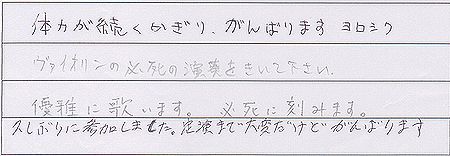 体力が続くかぎり、がんばります ヨロシク
ヴァイオリンの必死の演奏をきいて下さい.
優雅に歌います。 必死に刻みます。
久しぶりに参加しました。定演まで大変だけどがんばります